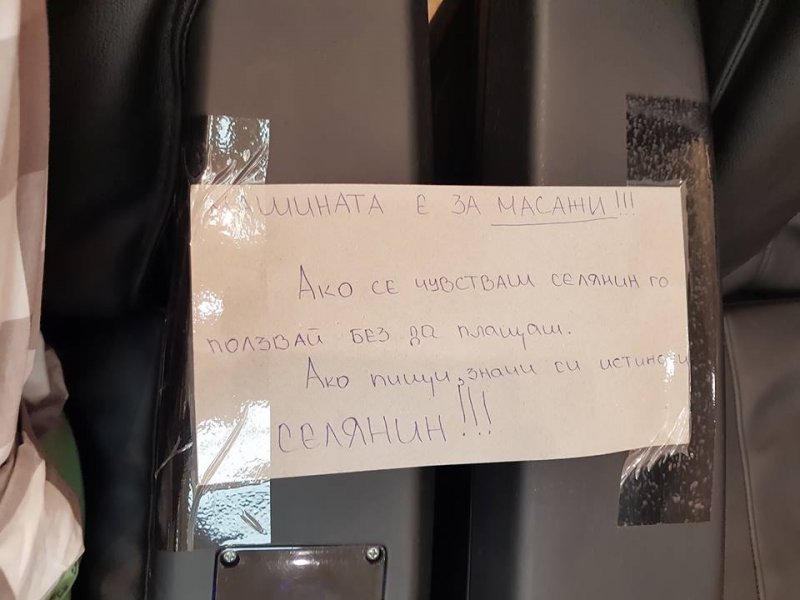 МАШИНАТА Е ЗА МАСАЖИ!!!
Ако се чувстваш селянин го
ползвай без да плащаш.
Ако пищи, значи си истински
СЕЛЯНИН!!!